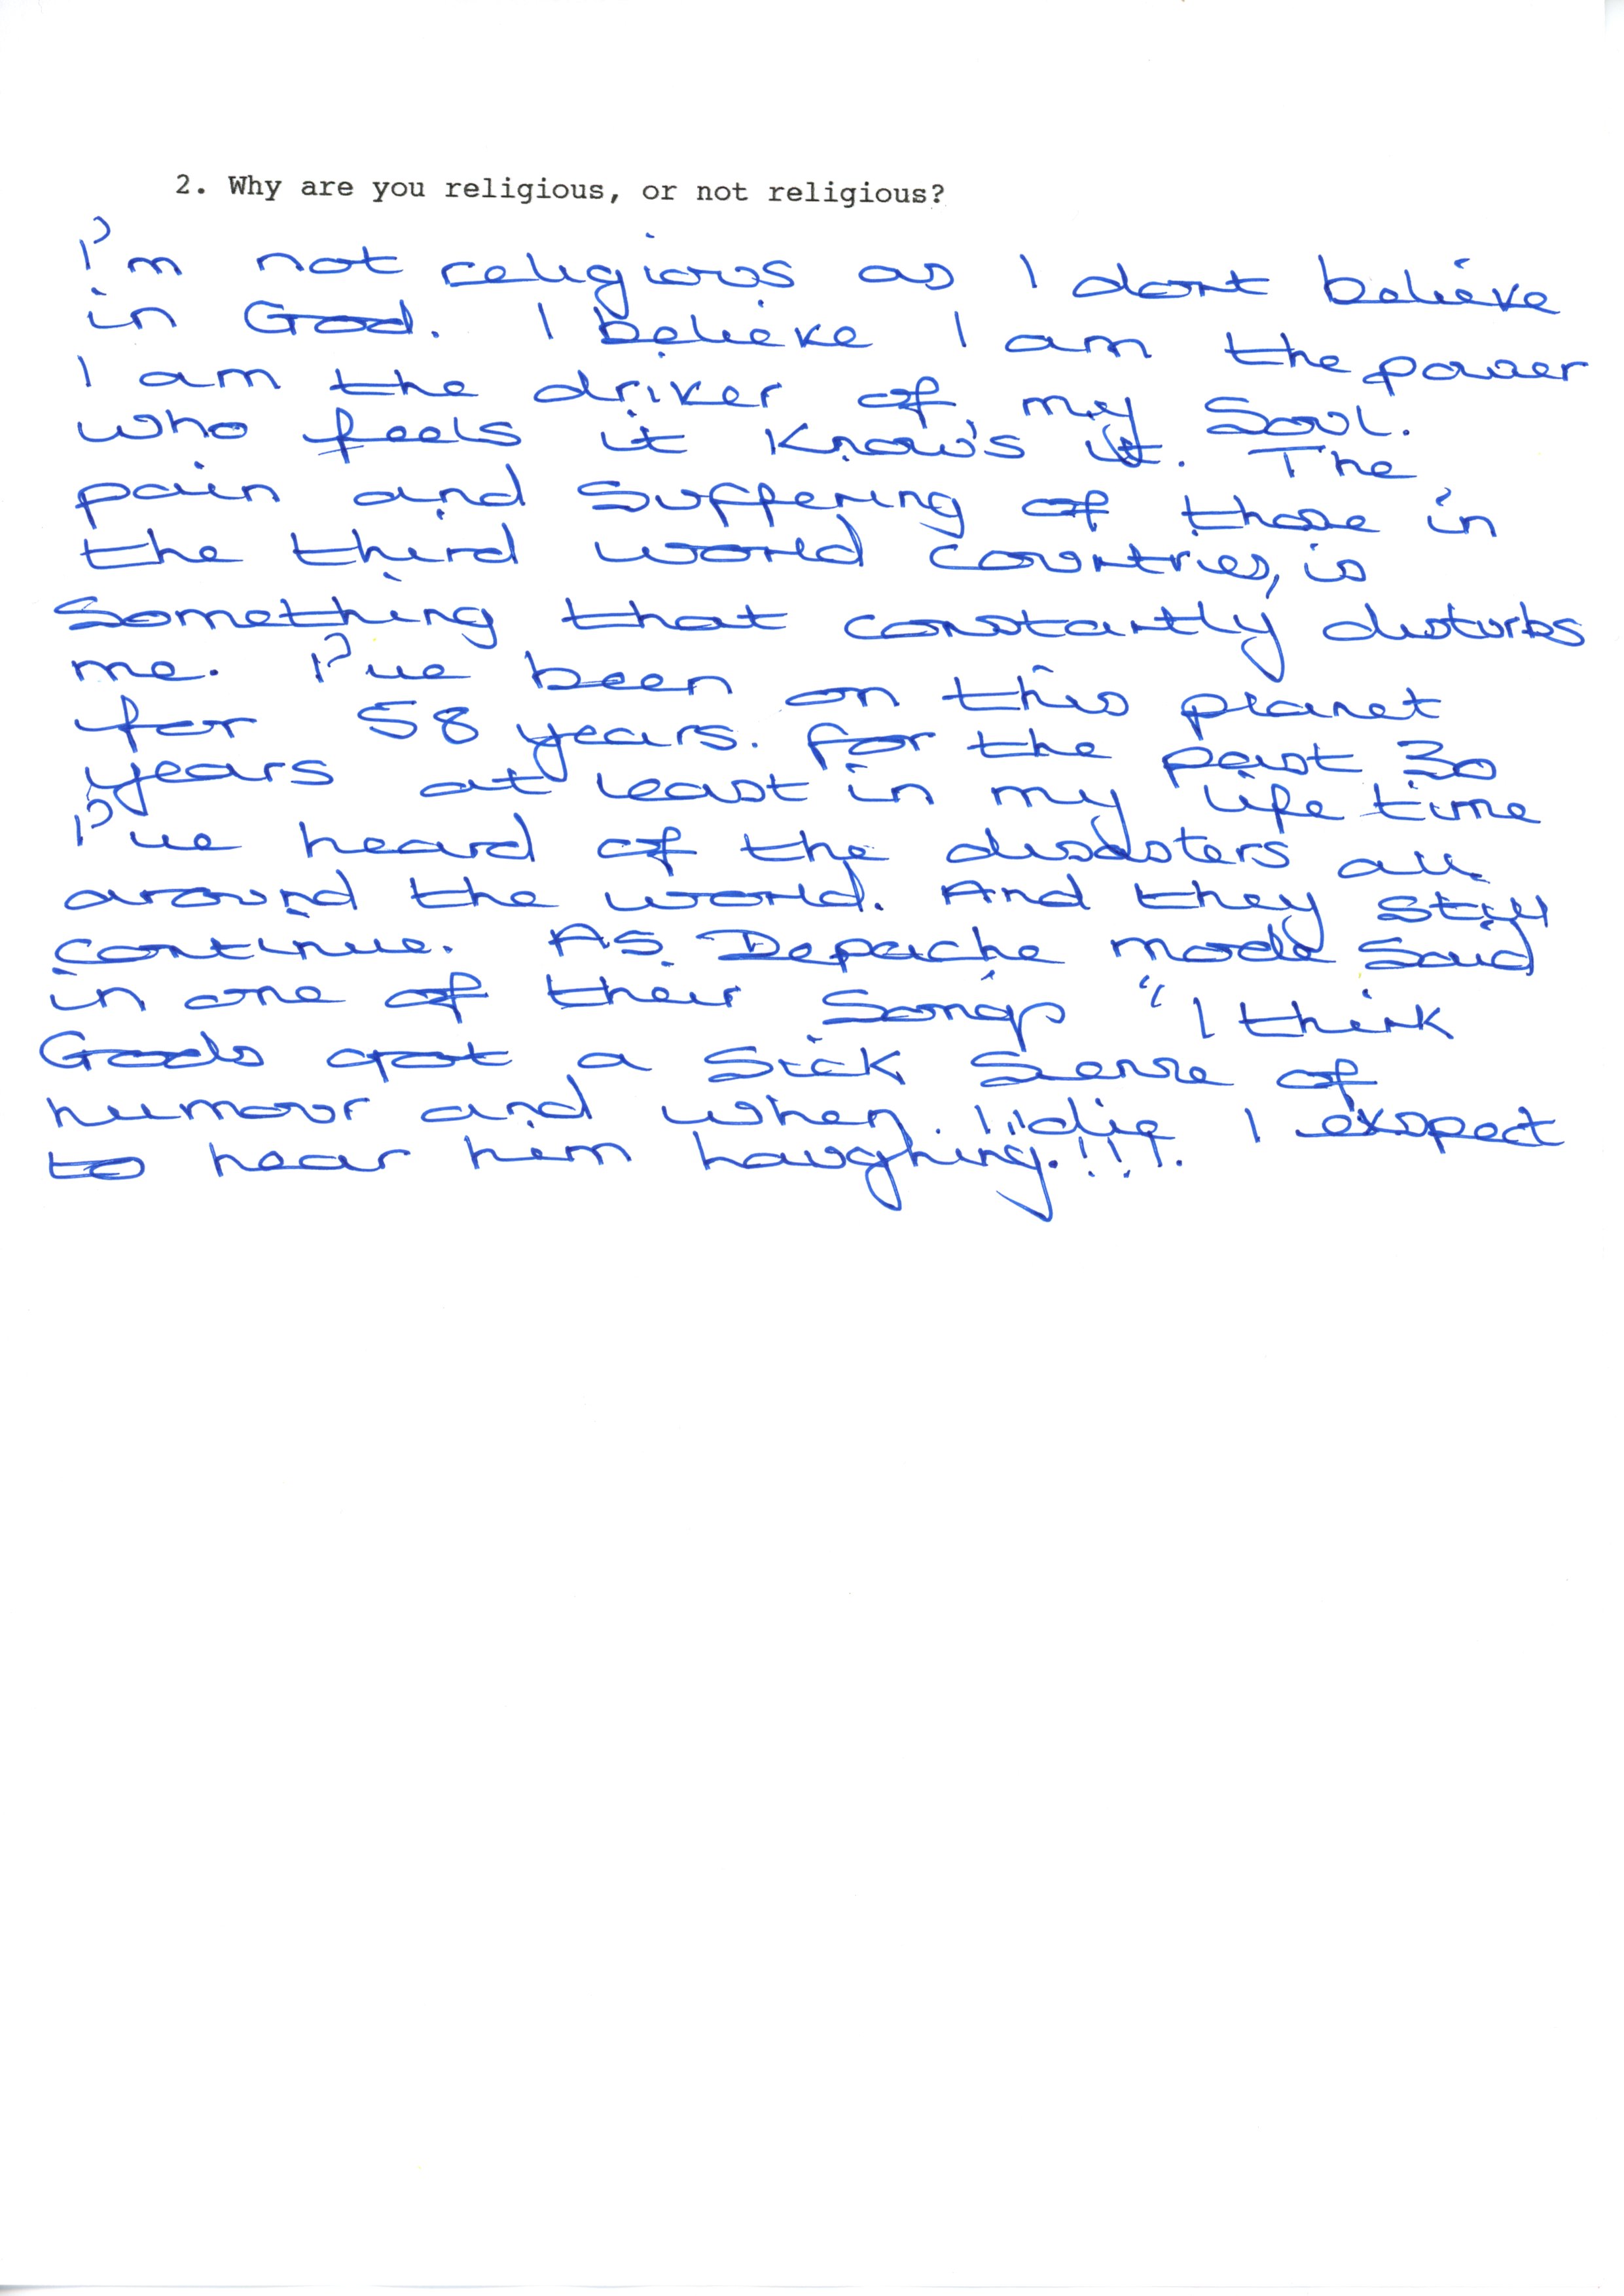 2. Why are you religious, or not religious?
I'm not religious as I dont believe
in God. I believe I am the power
I am the driver of my Soul.
who feels it Know's it. The
pain and Suffering of those in
the third world countries, is
Something that constantly disturbs
me. I've been on this planet
for 58 years. for the past 30
years at least in my life time
I've heard of the disasters all
around the world. And they still
continue. AS Depeche mode Said
in one of their Songs "I think
Gods got a Sick Sense of
humour and when I die I exspect
to hear him laughing.!!!.